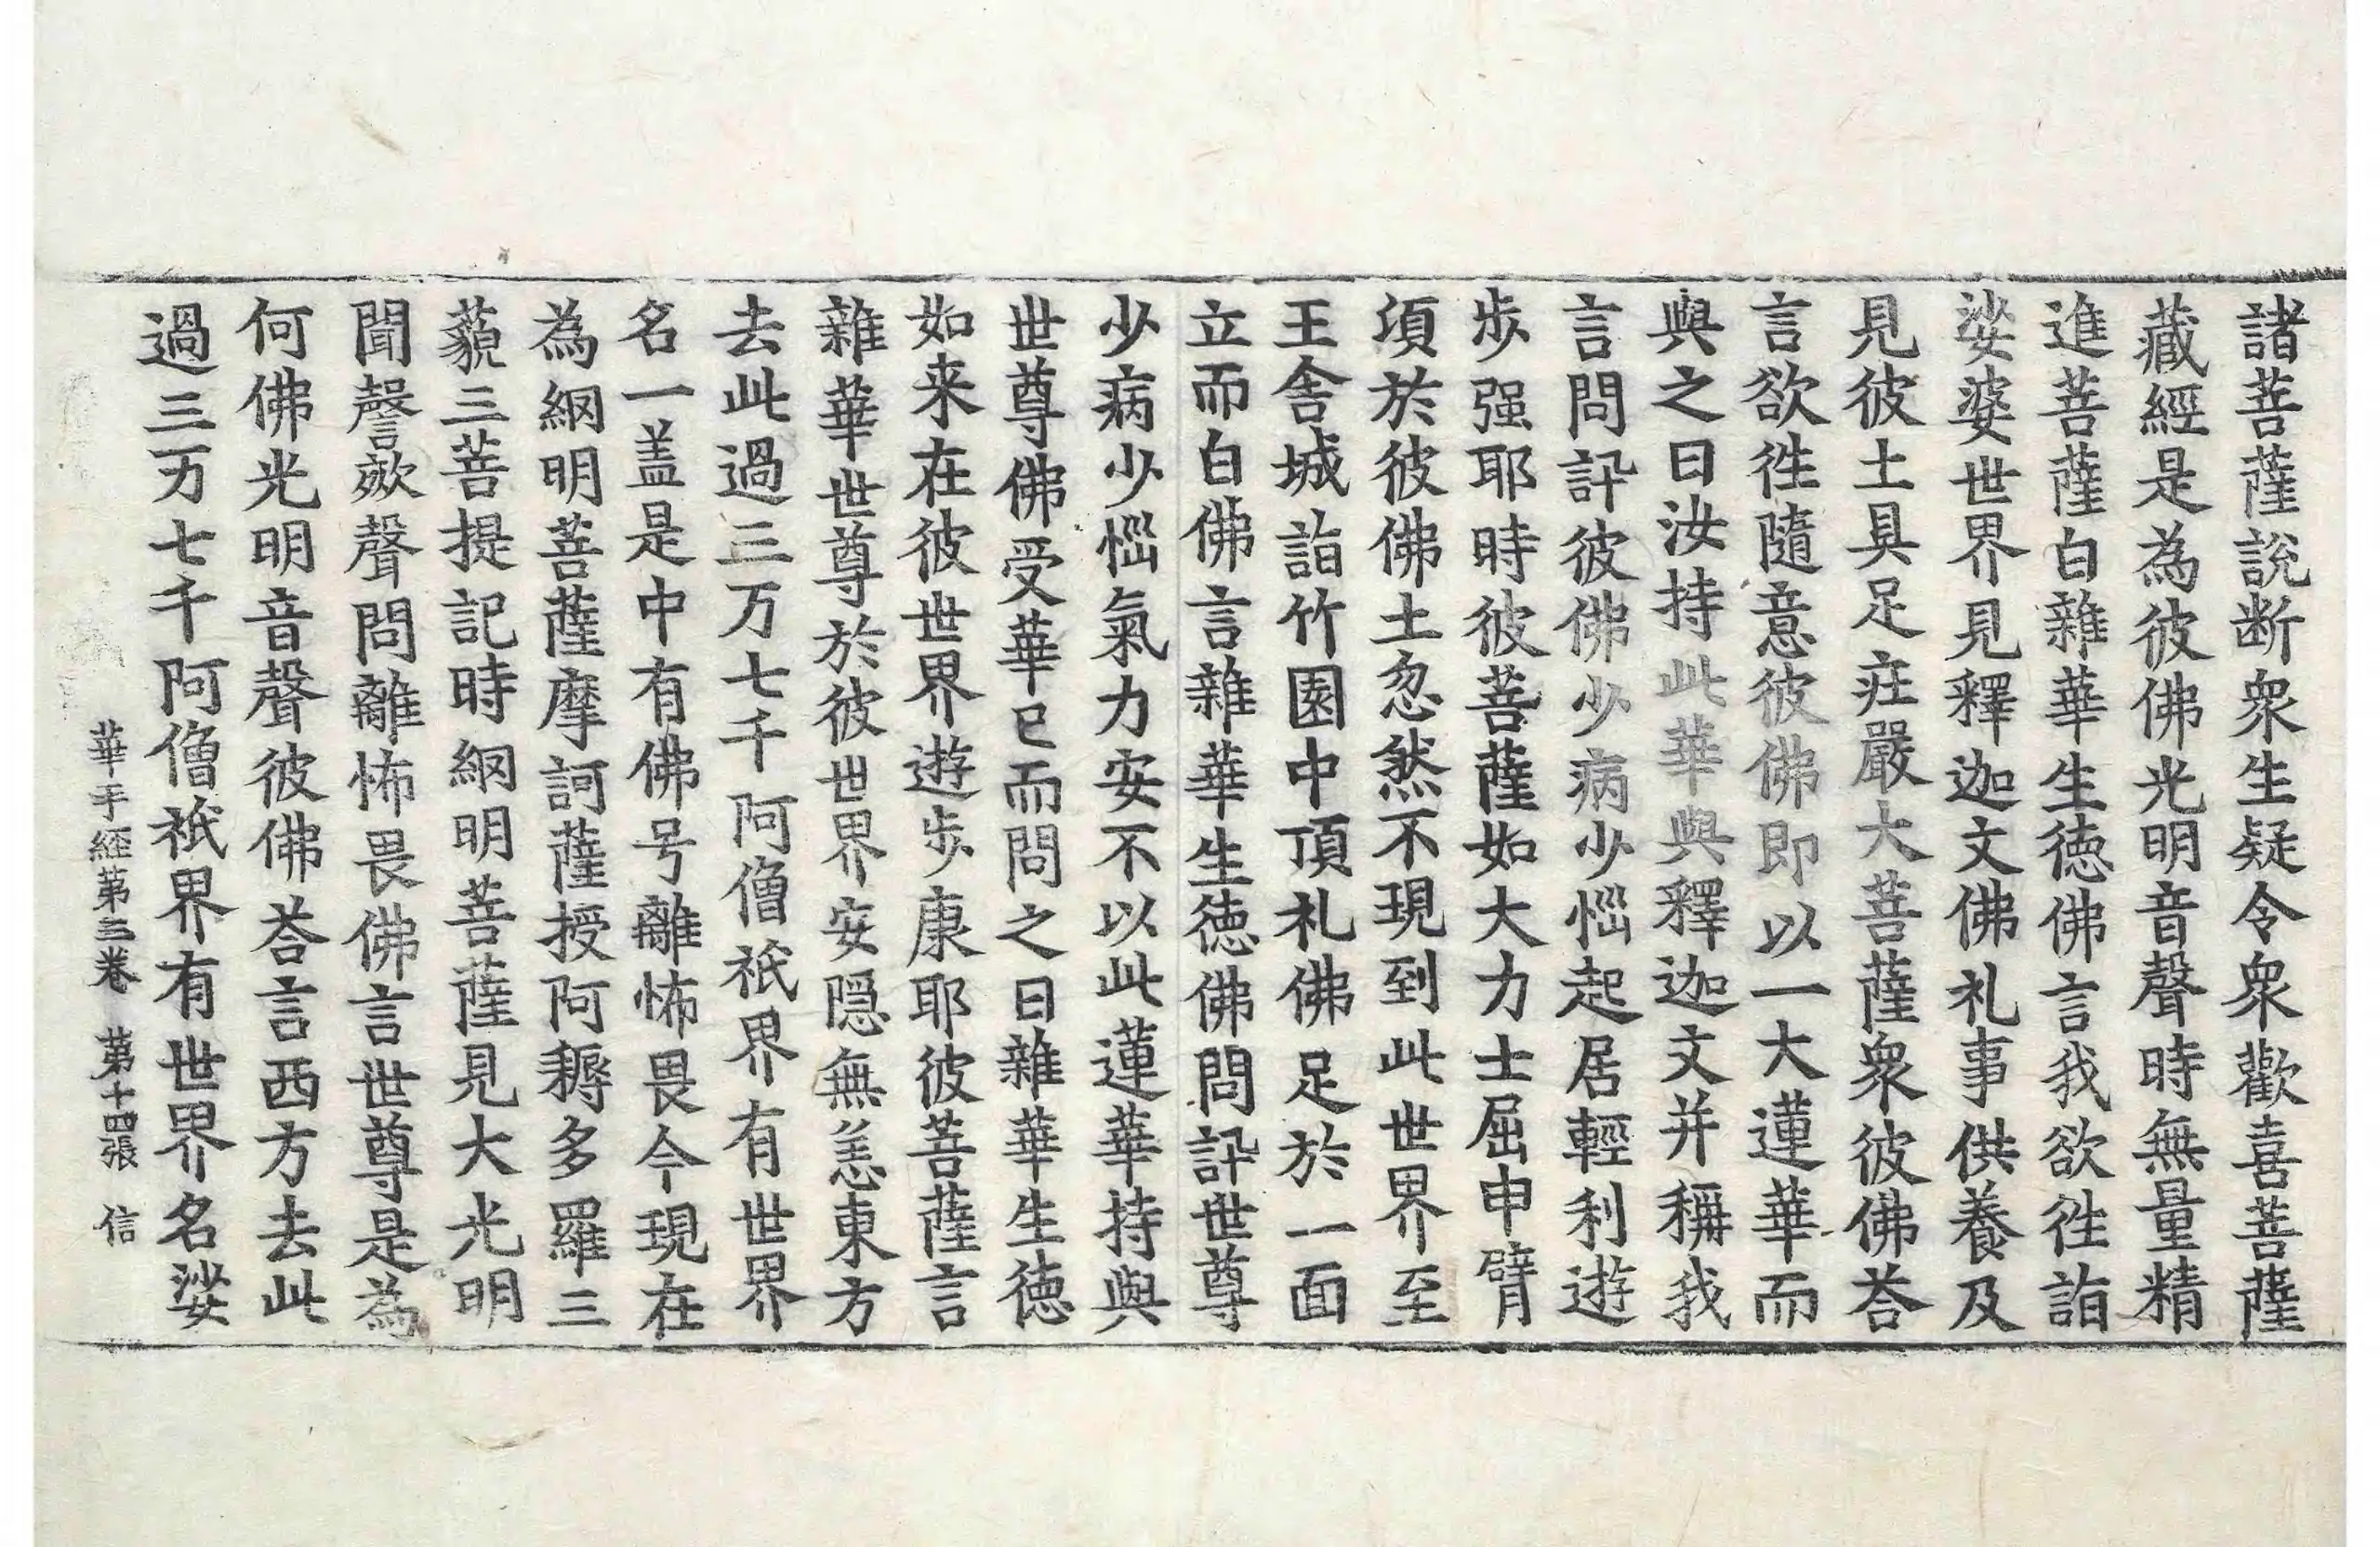 諸菩薩說断衆生疑令衆歡喜菩薩
藏經是為彼佛光明音聲時無量精
進菩薩白雜華生徳佛言我欲徃詣
娑婆世界見釋迦文佛礼事供養及
見彼土具足疰嚴大菩薩衆彼佛荅
言欲徃隨意彼佛即以一大蓮華而
與之曰汝持此華與釋迦文并稱我
言問訊彼佛少病少惱起居輕利遊
步强耶時彼菩薩如大力士屈申臂
項於彼佛土忽然不現到此世界至
王舍城詣竹園中頂礼佛足於一面
立而白佛言雜華生徳佛問訊世尊
少病少惱氣力安不以此蓮華持與
世尊佛受華已而問之曰雜華生徳
如来在彼世界遊步康耶彼菩薩言
雜華世尊於彼世界安隱無恙東方
去此過三万七千阿僧祇界有世界
名一盖是中有佛号離怖畏今現在
為網明菩薩摩訶薩授阿耨多羅三
藐三菩提記時網明菩薩見大光明
聞謦欬聲問離怖畏佛言世尊是為
何佛光明音聲彼佛荅言西方去此
過三万七千阿僧祇界有世界名娑
華手經第三卷 第十四張 信